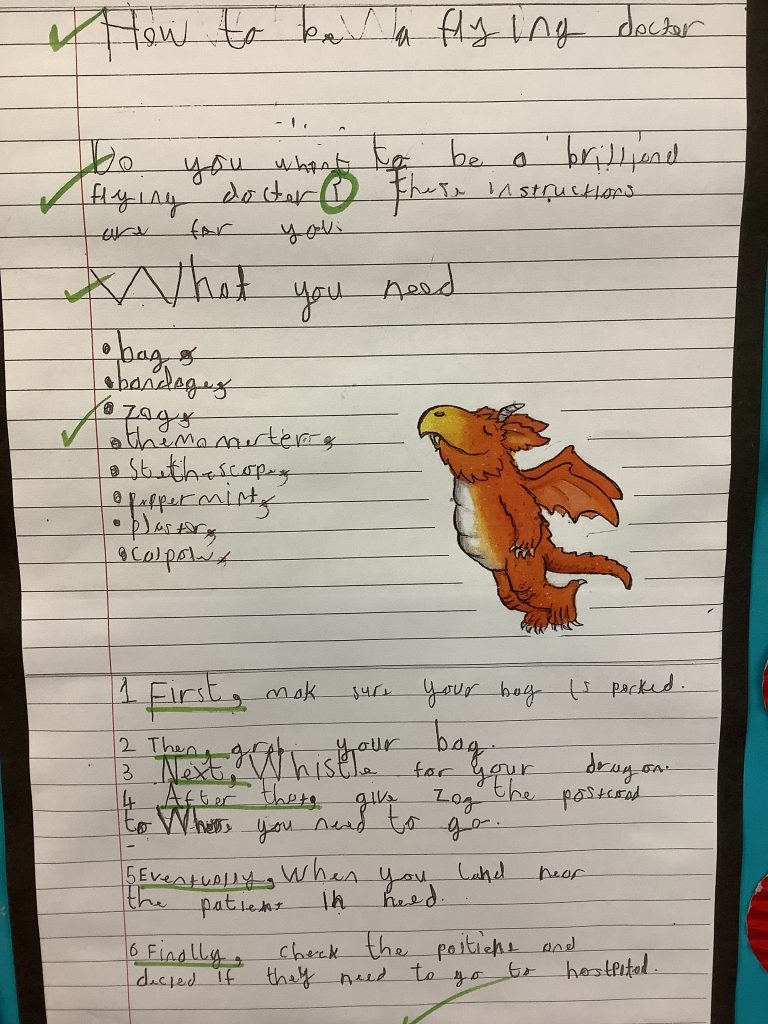 How to be a flying doctor
Do you whant to be a brilliend
flying doctor? These instructions
are for you.
What you need
• bag,
• bandage,
• Zog,
• themomerter,
• Stethescope,
• peppermint,
• plaster,
• calpol,
1 First, mak sure your bag is packed.
2 Then, grab your bag.
3 Next, Whistle for your dragon.
4 After that, give Zog the postcood
to Where you need to go.
5 Eventually, When you land near
the patiens in need.
6 Finally, check the and
decied if they need to go to